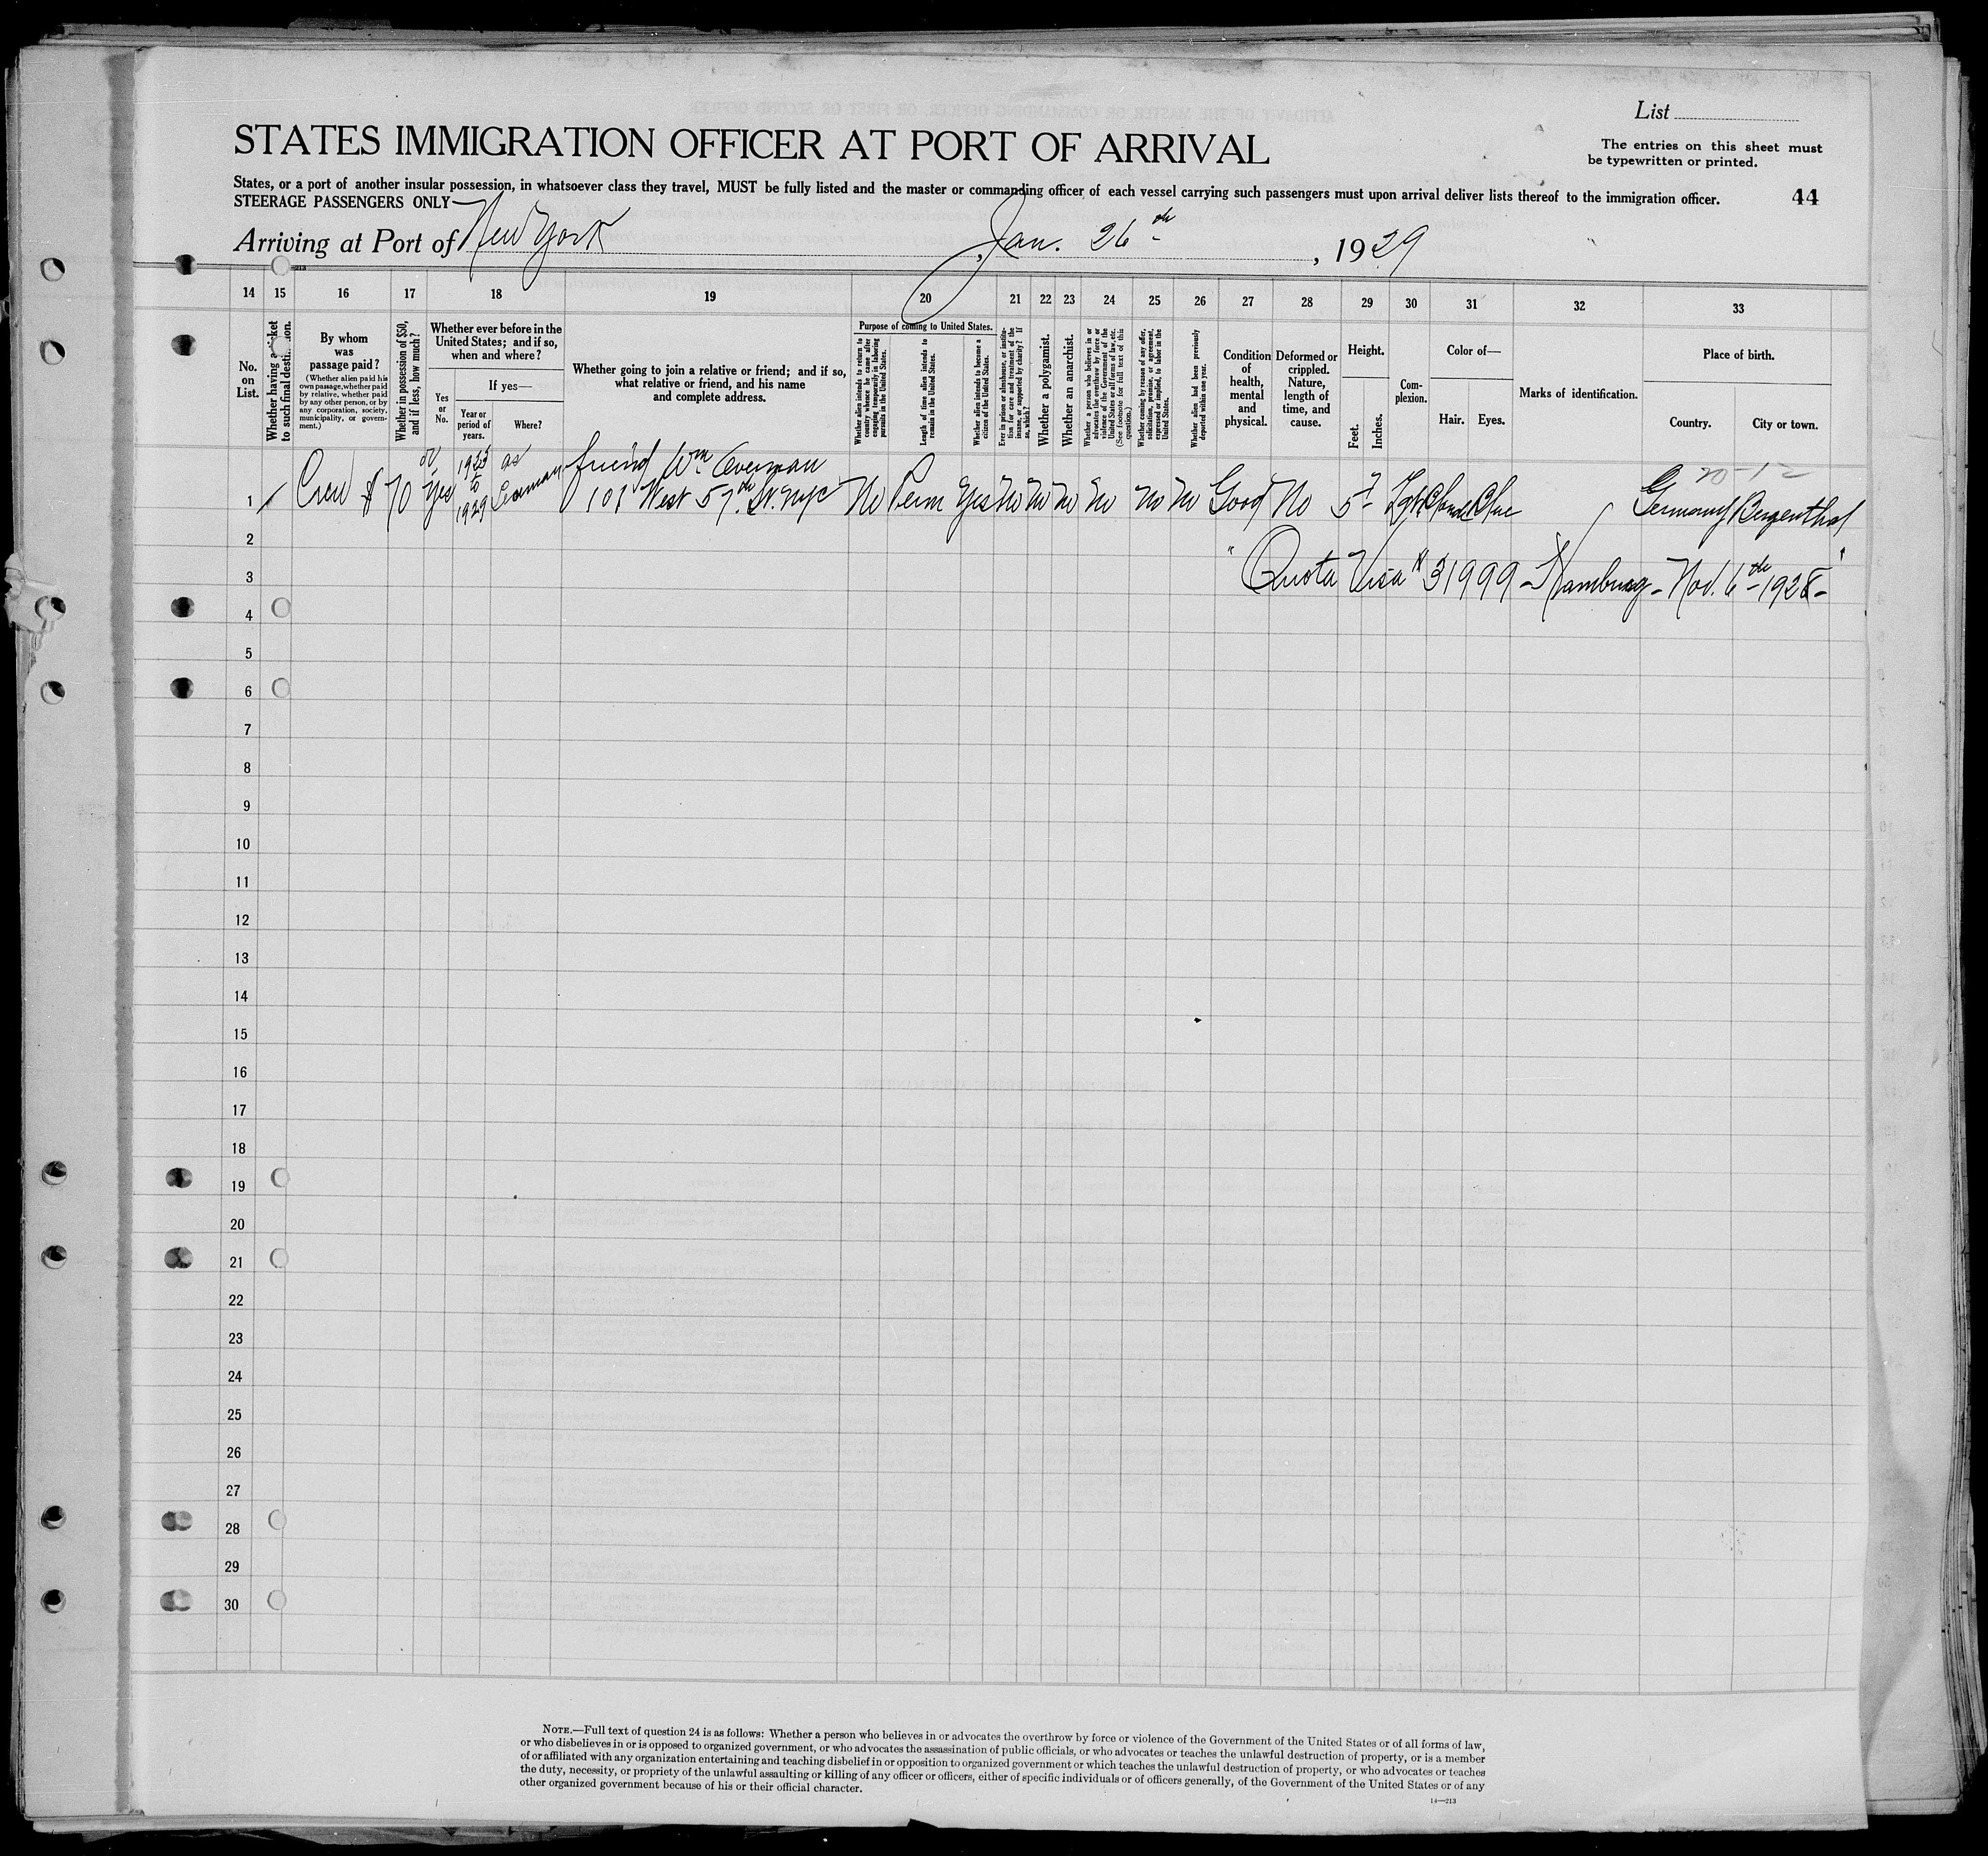 List
STATES IMMIGRATION OFFICER AT PORT OF ARRIVAL
The entries on this sheet must
be typewritten or printed.
States, or a port of another insular possession, in whatsoever class they travel, MUST be fully listed and the master or commanding officer of each vessel carrying such passengers must upon arrival deliver lists thereof to the immigration officer.
STEERAGE PASSENGERS ONLY
44
Arriving at Port of New York, Jan. 26th, 1929
14 15 16 17 18 19 20 21 22 23 24 25 26 27 28 29 30 31 32 33
No.
on
List.
Whether having a ticket
to such final destination.
By whom
was
passage paid?
(Whether alien paid his
own passage, whether paid
by relative, whether paid
by any other person, or by
any corporation, society,
municipality, or govern-
ment.)
Whether in possession of $50,
and if less, how much?
Whether ever before in the
United States; and if so,
when and where?
If yes—
Yes
or
No.
Year or
period of
years.
Where?
Whether going to join a relative or friend; and if so,
what relative or friend, and his name
and complete address.
Purpose of coming to United States.
Whether alien intends to return to
country whence he came after
engaging temporarily in laboring
pursuits in the United States.
Length of time alien intends to
remain in the United States.
Whether alien intends to become a
citizen of the United States.
Ever in prison or almshouse, or institu-
tion for care and treatment of the
insane, or supported by charity? If
so, which?
Whether a polygamist.
Whether an anarchist.
Whether a person who believes in or
advocates the overthrow by force or
violence of the Government of the
United States or all forms of law, etc.
(See footnote for full text of this
question.)
Whether coming by reason of any offer,
solicitation, promise, or agreement,
expressed or implied, to labor in the
United States.
Whether alien had been previously
deported within one year.
Condition
of
health,
mental
and
physical.
Deformed or
crippled.
Nature,
length of
time, and
cause.
Height.
Feet.
Inches.
Com-
plexion.
Color of—
Hair. Eyes.
Marks of identification.
Place of birth.
Country. City or town.
1925 as friend Wm
20-12
1 Crew $70 Yes to Seaman 101 West 57th St. NYC No Perm Yes No No No No No No Good No 5 7 Lgt Blond Blue Germany Bergenthal
1929
2
" Quota Visa # 31999 - Hamburg - Nov. 6th - 1928 - "
3
4
5
6
7
8
9
10
11
12
13
14
15
16
17
18
19
20
21
22
23
24
25
26
27
28
29
30
NOTE.—Full text of question 24 is as follows: Whether a person who believes in or advocates the overthrow by force or violence of the Government of the United States or of all forms of law,
or who disbelieves in or is opposed to organized government, or who advocates the assassination of public officials, or who advocates or teaches the unlawful destruction of property, or is a member
of or affiliated with any organization entertaining and teaching disbelief in or opposition to organized government or which teaches the unlawful destruction of property, or who advocates or teaches
the duty, necessity, or propriety of the unlawful assaulting or killing of any officer or officers, either of specific individuals or of officers generally, of the Government of the United States or of any
other organized government because of his or their official character.
14—213